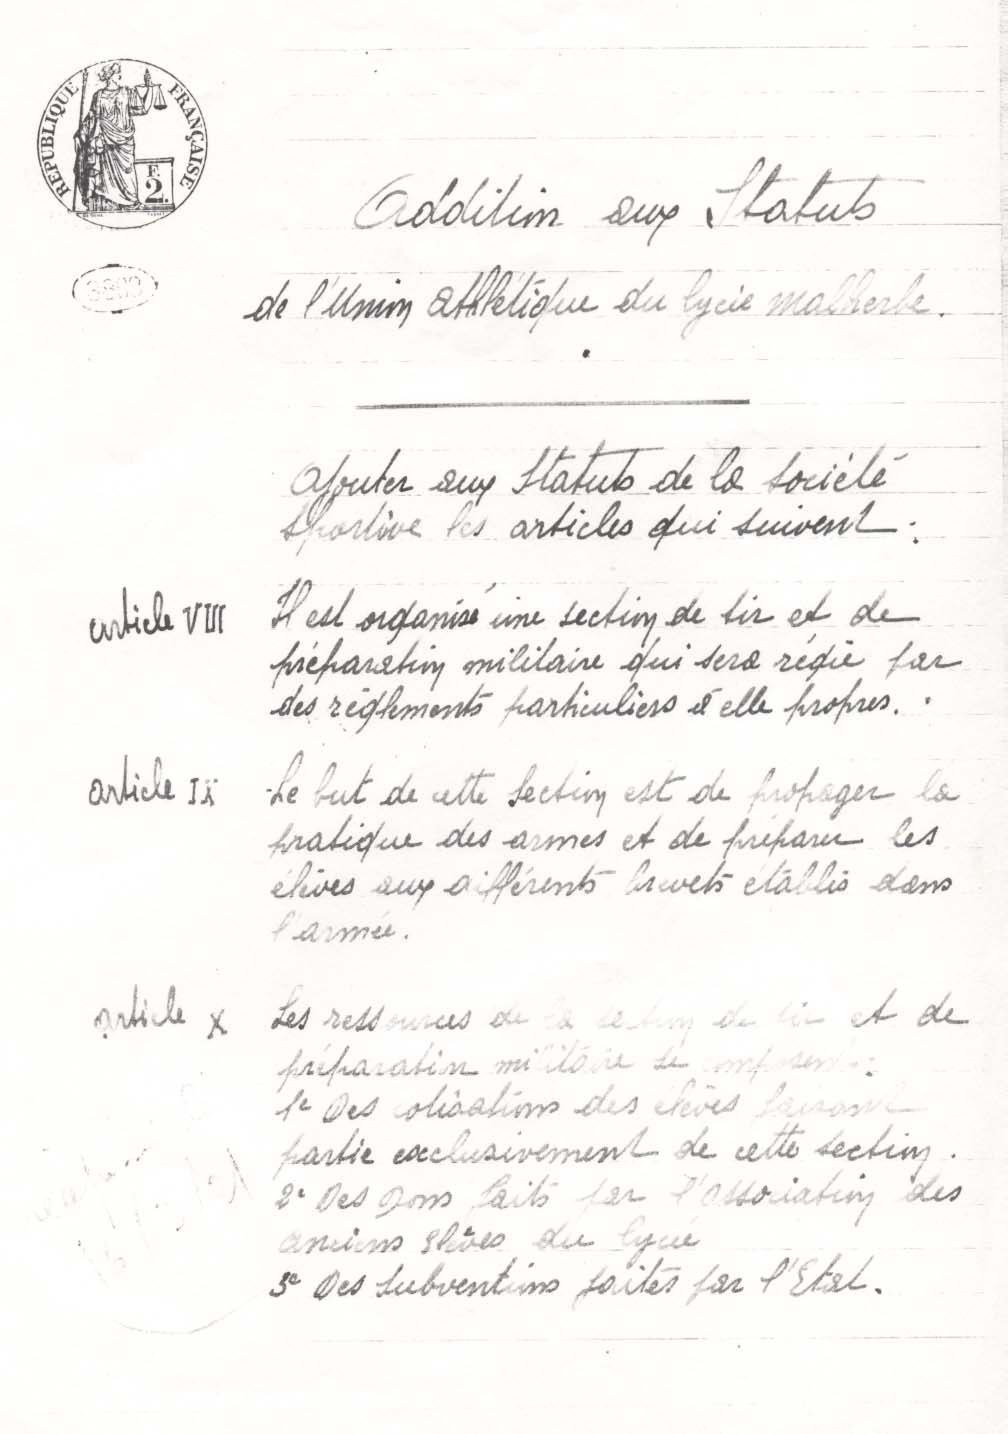 RÉPUBLIQUE FRANÇAISE
F.
2.
3803
Addition aux Statuts
de l'Union athlétique du lycée malherbe.
Ajouter aux Statuts de la Société
Sportive les articles qui suivent :
article VIII
Il est organisé une section de tir et de
préparation militaire qui sera régie par
des réglements particuliers à elle propres.
article IX
Le but de cette Section est de propager la
pratique des armes et de préparer les
élèves aux différents brevets établis dans
l'armée.
article X
Les ressources de la section de tir et de
préparation militaire se composent :
1e Des cotisations des élèves faisant
partie exclusivement de cette section.
2e Des Dons faits par l'Association des
anciens élèves du lycée
3e Des subventions faites par l'Etat.